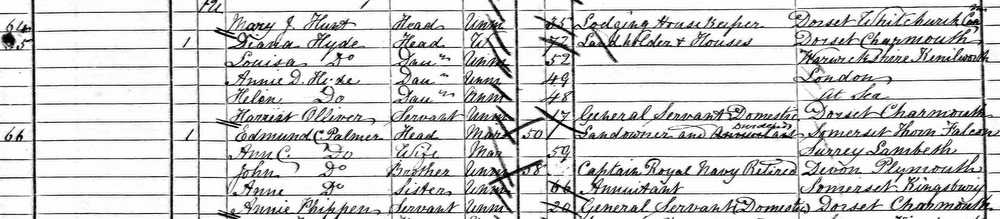 64 Mary J Hunt Head Unm 35 Lodging House Keeper Dorset Whitchurch Can
65 1 Diana Hyde Head W 72 Landholder & Houses Dorset Charmouth
Louisa Do Daur Unm 52 Warwickshire Kenilworth
Annie D. Hyde Daur Unm 49 London
Helen Do Daur Unm 48 At Sea
Harriet Olliver Servant Unm 17 General Servant Domestic Dorset Charmouth
66 1 Edmund C. Palmer Head Mar 50 Landowner and Dividends Somerset Thorn Falcon
Ann C. Do Wife Mar 59 Surrey Lambeth
John Do Brother Unm 58 Captain Royal Navy Retired Devon Plymouth
Anne Do Sister Unm 66 Annuitant Somerset Kingsbury
Annie Phippen Servant Unm 20 General Servant (Domestic) Dorset Charmouth